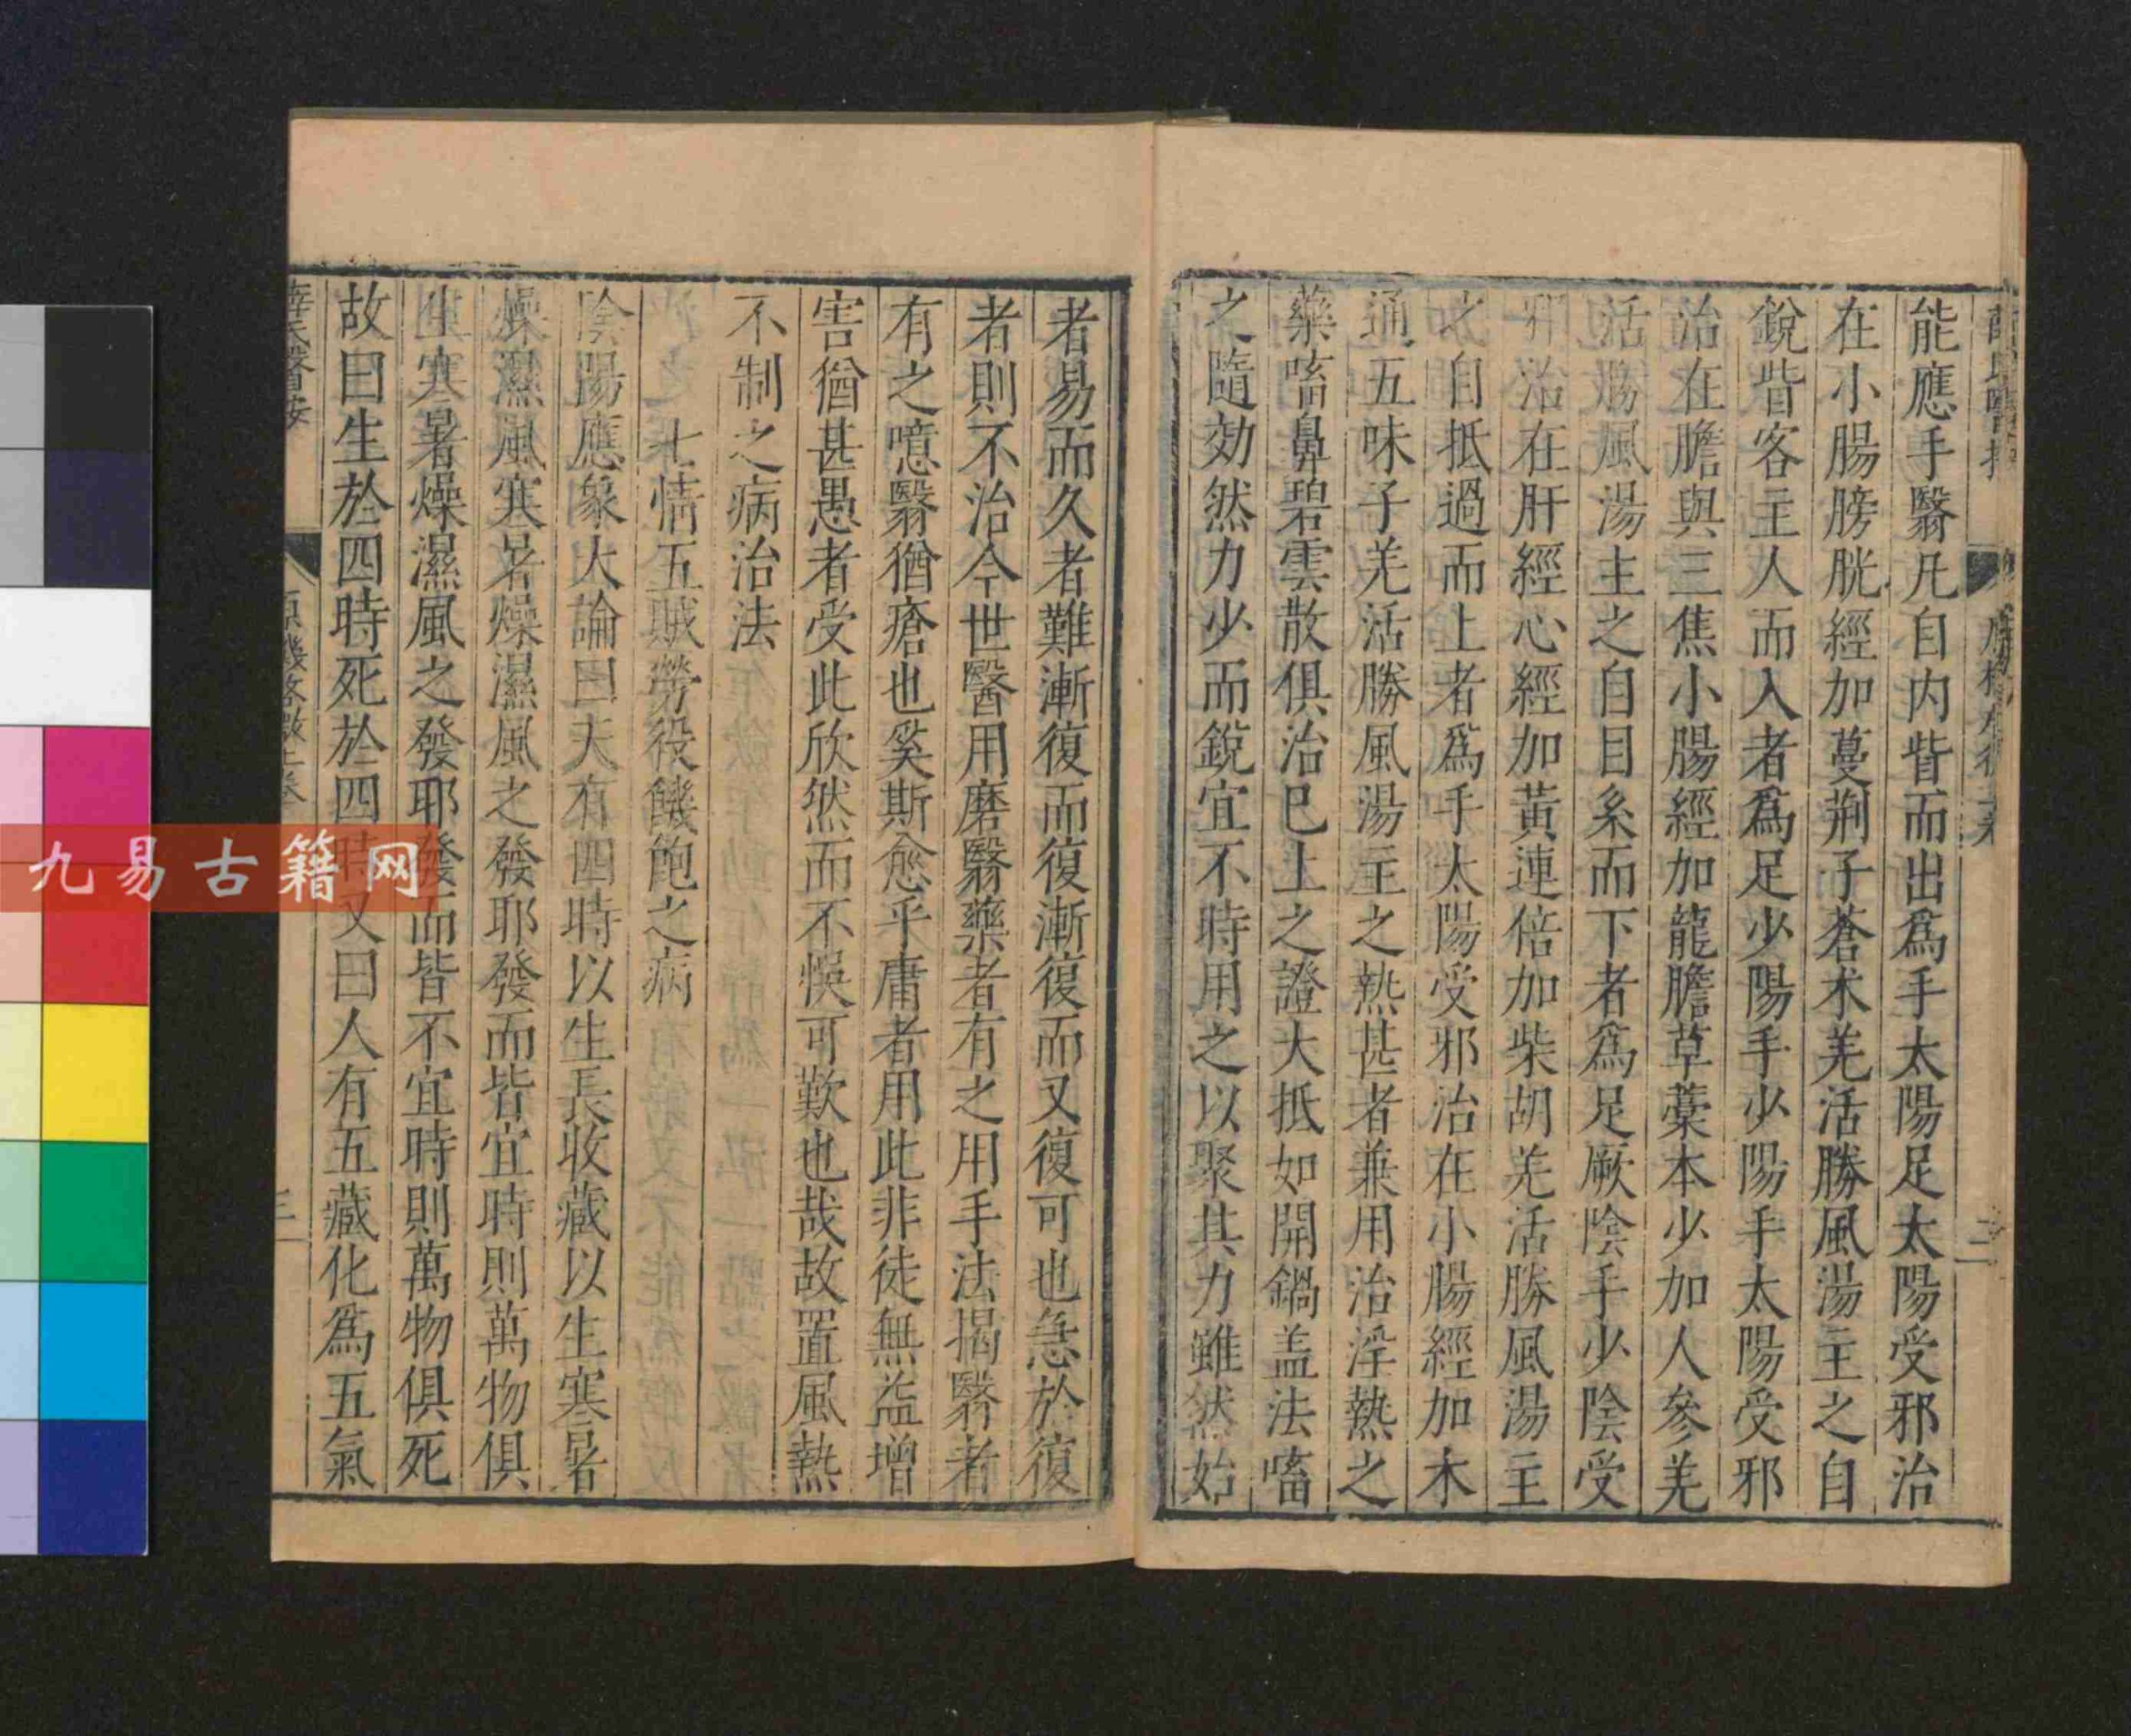 能應手翳凡自内眥而出爲手太陽足太陽受邪治
在小腸膀胱經加蔓荆子蒼术羌活勝風湯主之自
銳眥客主人而入者爲足少陽手少陽手太陽受邪
治在膽與三焦小腸經加龍膽草藁本少加人參羌
活勝風湯主之自目系而下者爲足厥陰手少陰受
邪治在肝經心經加黃連倍加柴胡羌活勝風湯主
之自抵過而上者爲手太陽受邪治在小腸經加木
通五味子羌活勝風湯主之熱甚者兼用治淫熱之
藥㗜鼻碧雲散俱治已上之證大抵如開鍋盖法㗜
之隨効然力少而銳宜不時用之以聚其力雖然始
者易而久者難漸復而復漸復而又復可也急於復
者則不治今世醫用磨翳藥者有之用手法揭翳者
有之噫翳猶瘡也奚斯愈乎庸者用此非徒無益增
害猶甚愚者受此欣然而不悞可歎也哉故置風熱
不制之病治法
七情五賊勞役饑飽之病
陰陽應象大論曰夫有四時以生長收藏以生寒暑
燥濕風寒暑燥濕風之發耶發而皆宜時則萬物俱
生寒暑燥濕風之發耶發而皆不宜時則萬物俱死
故曰生於四時死於四時又曰人有五藏化爲五氣
薛氏醫按
原機啓微上卷
三
九易古籍网